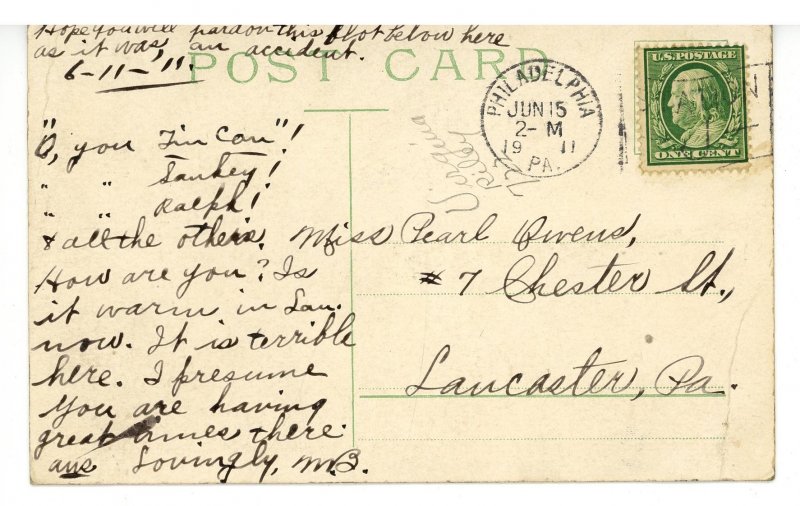 Hope you will pardon this blot below here
as it was, an accident.
6-11-'11.
POST CARD
U.S. POSTAGE
ONE CENT
PHILADELPHIA
JUN 15
2- M
19 11
PA.
"O, you Tin Can"!
" " Sankey!
" " Ralph!
& all the others.
How are you? Is
it warm in Lan.
now. It is terrible
here. I presume
you are having
great times there.
ans Lovingly, M.B.
Miss Pearl Owens,
# 7 Chester St.,
Lancaster, Pa.